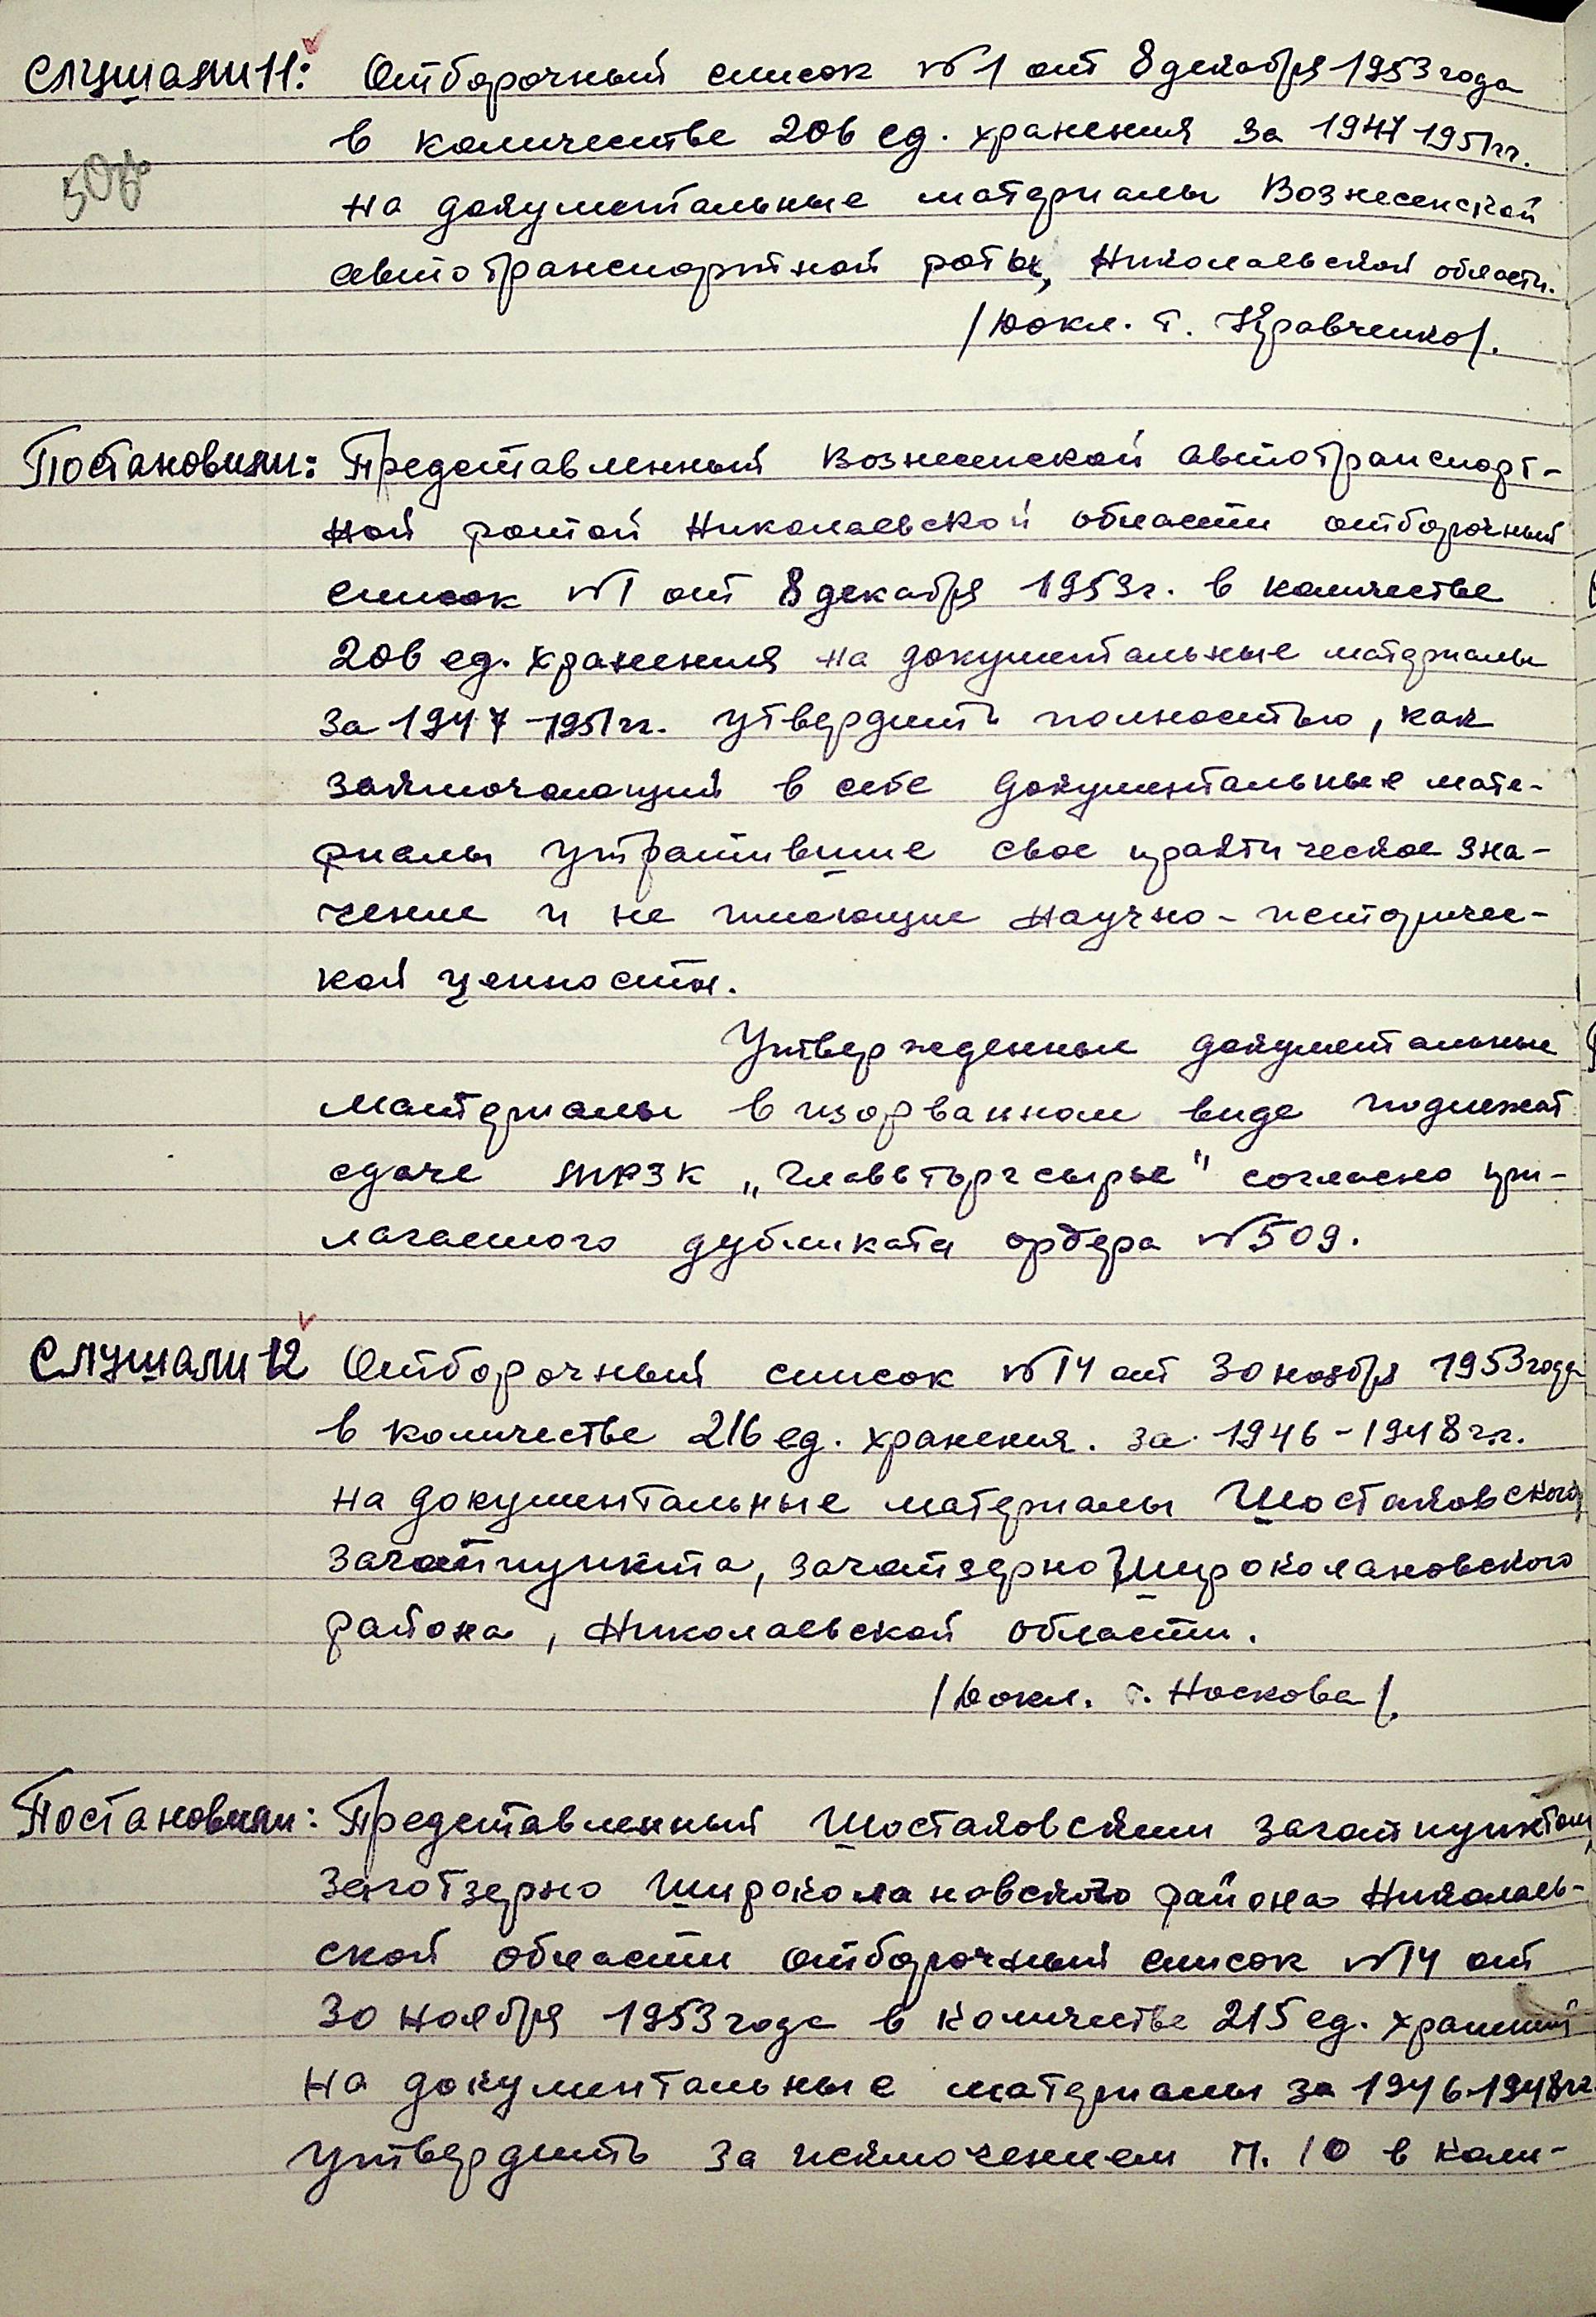 Слушали 11: Отборочный список №1 от 8 декабря 1953 года
в количестве 206 ед. хранения за 1947 1951гг.
на документальные материалы Вознесенской
автотранспортной роты, Николаевской области.
/Докл. т. Кравченко/.
Постановили: Представленный Вознесенской автотранспорт-
ной ротой Николаевской области отборочный
список №1 от 8 декабря 1953г. в количестве
206 ед. хранения на документальные материалы
за 1947-1951гг. утвердить полностью, как
заключающий в себе документальные мате-
риалы утратившие свое практическое зна-
чение и не имеющие научно-историчес-
кой ценности.
Утвержденные документальные
материалы в изорванном виде подлежат
сдаче „Главвторсырье" согласно при-
лагаемого дубликата ордера №509.
Слушали 12 Отборочный список №14 от 30 ноября 1953 года
в количестве 216 ед. хранения. за 1946-1948 гг.
на документальные материалы Шостаковского
заготпункта, заготзерно, Широколановского
района, Николаевской области.
/Докл. т. Носкова/.
Постановили: Представленный Шостаковским заготпунктом,
Заготзерно Широколановского района Николаев-
ской области отборочный список №14 от
30 ноября 1953 года в количестве 215 ед. хранений
на документальные материалы за 1946-1948гг.
утвердить за исключением п. 10 в коли-